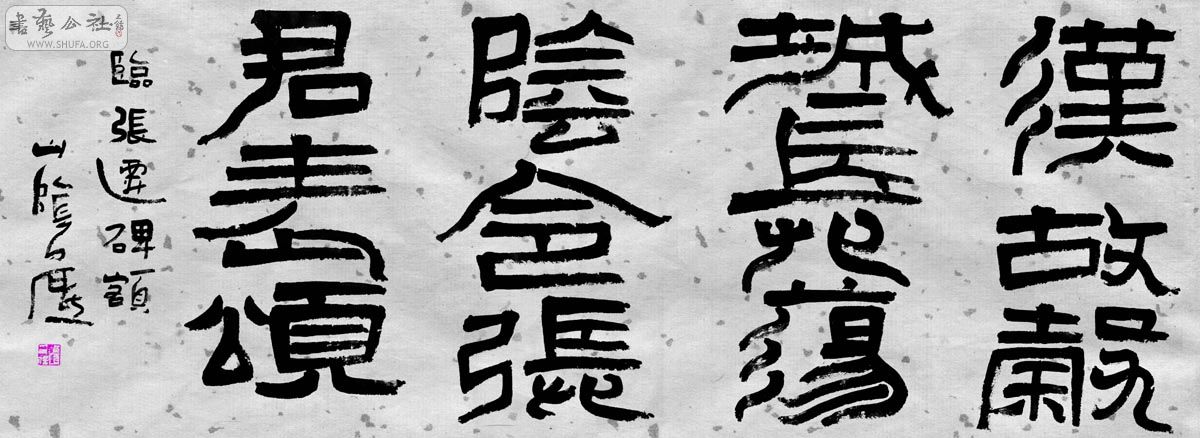 漢故穀
城長蕩
陰令張
君表頌
臨張遷碑額
山陰
書藝公社
WWW.SHUFA.ORG